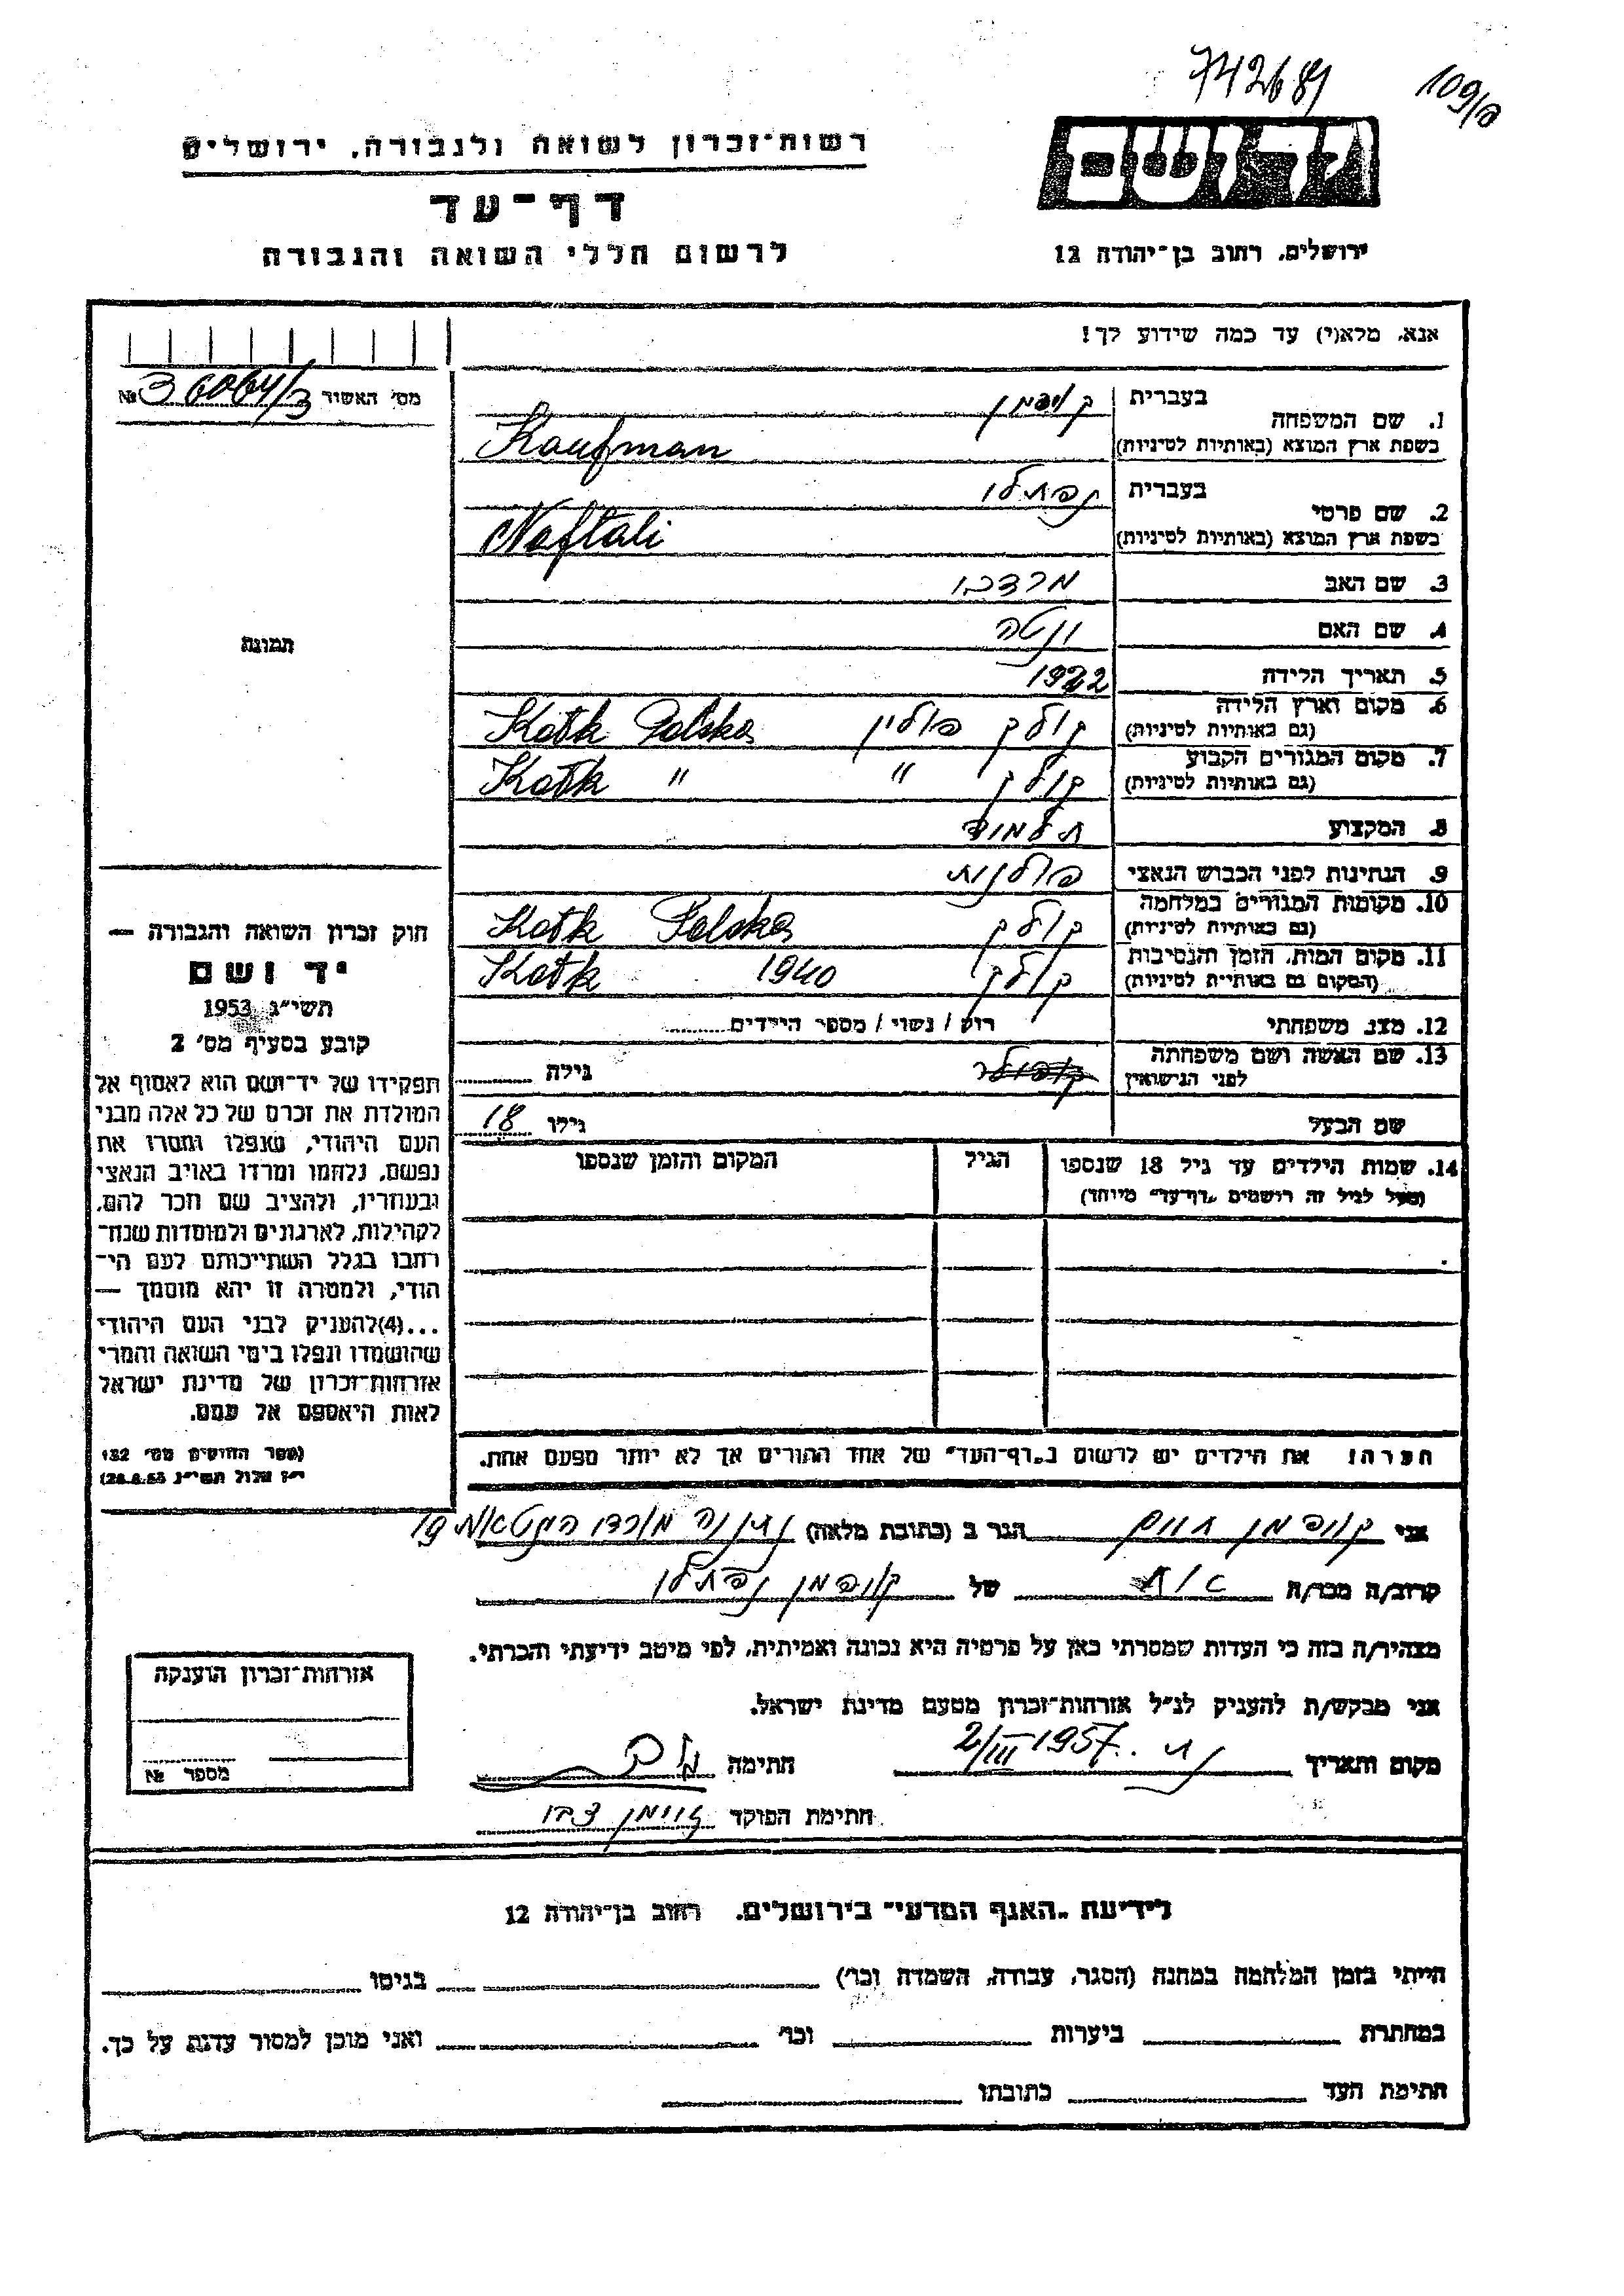 742681
109/ק
רשות־זכרון לשואה ולגבורה, ירושלים
דף־עד
לרשום חללי השואה והגבורה
יד ושם
ירושלים, רחוב בן־יהודה 12
אנא, מלא(י) עד כמה שידוע לך!
מס׳ האשור № 36064/3
1. שם המשפחה
בעברית קויפמן
בשפת ארץ המוצא (באותיות לטיניות) Kaufman
2. שם פרטי
בעברית נפתלי
בשפת ארץ המוצא (באותיות לטיניות) Naftali
3. שם האב מרדכי
4. שם האם
5. תאריך הלידה 1922
6. מקום וארץ הלידה
(גם באותיות לטיניות) קולק פולין Kołk Polska
7. מקום המגורים הקבוע
(גם באותיות לטיניות) קולק " Kołk "
8. המקצוע תלמיד
9. הנתינות לפני הכבוש הנאצי פולנית
10. מקומות המגורים במלחמה
(גם באותיות לטיניות) קולק Kołk Polska
11. מקום המות, הזמן והנסיבות
(המקום גם באותיות לטיניות) קולק Kołk 1940
12. מצב משפחתי רוק / נשוי / מספר הילדים
13. שם האשה ושם משפחתה
לפני הנישואין גילה
שם הבעל גילו 18
14. שמות הילדים עד גיל 18 שנספו
(מעל לגיל זה רושמים „דף־עד" מיוחד)
הגיל
המקום והזמן שנספו
הערה: את הילדים יש לרשום ב„דף־העד" של אחד ההורים אך לא יותר מפעם אחת.
תמונה
חוק זכרון השואה והגבורה —
יד ושם
תשי״ג 1953
קובע בסעיף מס׳ 2
תפקידו של יד־ושם הוא לאסוף אל
המולדת את זכרם של כל אלה מבני
העם היהודי, שנפלו ומסרו את
נפשם, נלחמו ומרדו באויב הנאצי
ובעוזריו, ולהציב שם וזכר להם,
לקהילות, לארגונים ולמוסדות שנח־
רבו בגלל השתייכותם לעם הי־
הודי, ולמטרה זו יהא מוסמך —
...(4) להעניק לבני העם היהודי
שהושמדו ונפלו בימי השואה והמרי
אזרחות־זכרון של מדינת ישראל
לאות היאספם אל עמם.
(ספר החוקים מס׳ 132
י״ז אלול תשי״ג 28.8.53)
אני קויפמן חיים הגר ב (כתובת מלאה) נתניה
קרוב/ה מכר/ה אח של קויפמן נפתלי
מצהיר/ה בזה כי העדות שמסרתי כאן על פרטיה היא נכונה ואמיתית, לפי מיטב ידיעתי והכרתי.
אני מבקש/ת להעניק לנ״ל אזרחות־זכרון מטעם מדינת ישראל.
מקום ותאריך 2/III 1957 חתימה
חתימת הפוקד
אזרחות־זכרון הוענקה
מספר №
לידיעת „האגף המדעי" בירושלים, רחוב בן־יהודה 12
הייתי בזמן המלחמה במחנה (הסגר, עבודה, השמדה וכו׳) בגיטו
במחתרת ביערות וכו׳ ואני מוכן למסור עדות על כך.
חתימת העד כתובתו